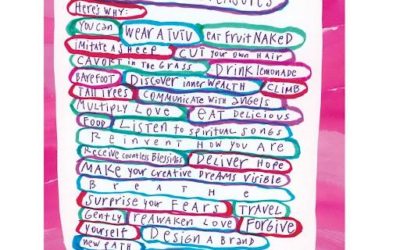 Here's why:
You can WEAR A TUTU eat Fruit NAKED
imitate a sheep cut your own hair
CAVORT in the GRASS Drink Lemonade
BAREFOOT Discover inner WEALTH CLIMB
TALL TREES Communicate with angels
Multiply Love eat Delicious
FOOD Listen to spiritual songs
Reinvent How you are
Receive countless Blessings Deliver Hope
Make your creative Dreams visible
Breathe
Surprise your Fears TRAVEL
Gently reawaken Love Forgive
yourself Design a Brand
new path